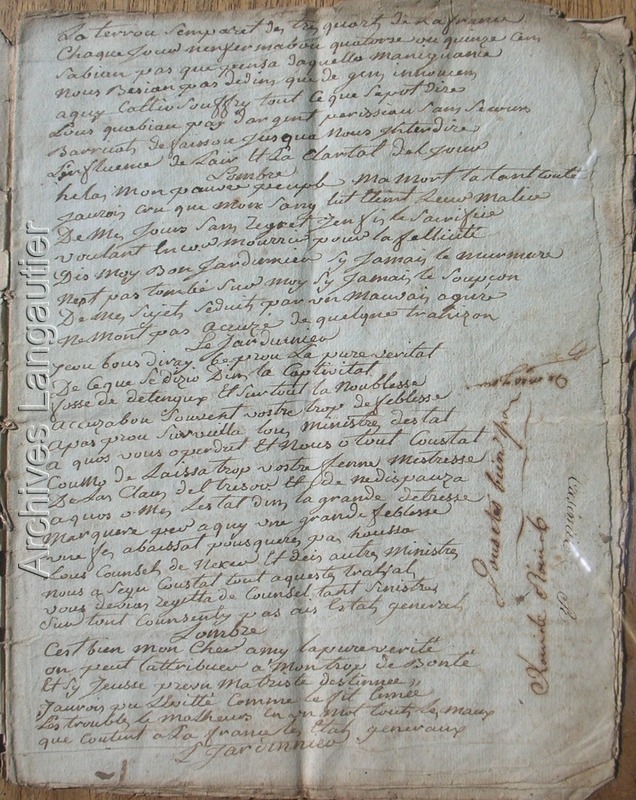 La terrou semparet des tres quarts de la france
Chaque Jour nenfermabou quatorse ou quinze Cens
Sabian pas que pensa daquello maniguanié
Nous Besian pas dedins que de gens innoucens
aquy Caltio Souffry tout Ceque Sepot dire
Lous quabian pas dargent perissian Sans Secours
Barruots de faissou Jusqua nous Interdire
Linfluence de Lair Et La Clartat del Jour
Lombre
helas Mon pauvre peuple Ma Mort la tant Couté
Jaurois Cru que Mon Sang lut Eteint Leur Malice
De Mes Jours Sans Regret Jen fis le Sacrifice
voulant Encor Mourrir pour la fellicité
Dis Moy Bon Jardinnier Sy Jamais le Murmure
Nept pas tombé Sur Moy Sy Jamais le Soupçon
De Mes Sujets Séduits par un Mauvais agure
Ne Mont pas accuzé de quelque trahizon
Le Jardinnier
yeou bous diray be prou La pure veritat
De Ceque Se dizio Dins la Captivitat
fosse de detenguts Et Surtout la Noublesse
accusabou Souvent vostre trop de feblesse
apas prou Surveilla lous Ministres destat
a quos vous a perdut Et Nous o tout Coustat
Coumo de Laissa trop vostre fenno Mistresse
De Las Claus del tresor Et de Ne dispauza
aquos o Mes Lestat dins la grande detresse
Marquere peu aquy une grande feblesse
une fes abaissat pousqueres pas haussa
Lous Counsels de Neker Et deis autres Ministres
nous a Segu Coustat tout aquestes trabals
vous devias regetta de Counsels tant Sinistres
Surtout Counsenty pas ais Estats generals
Lombre
C'est bien mon Cher amy la pure verité
on peut l'attribuer a Mon trop de Bonté
Et Sy Jeusse prevu Ma triste destinnée
Jaurois pu L'evitté Comme
Les troubles les malheurs En un Mot touts les Maux
que Coutent a La france les Etats generaux
L Jardinnier
Archives Langautier